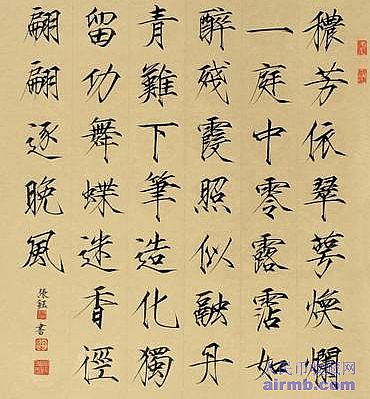 穠芳依翠萼煥爛
一庭中零露霑如
醉殘霞照似融丹
青難下筆造化獨
留功舞蝶迷香徑
翩翩逐晚風
張鈺書
airmb.com